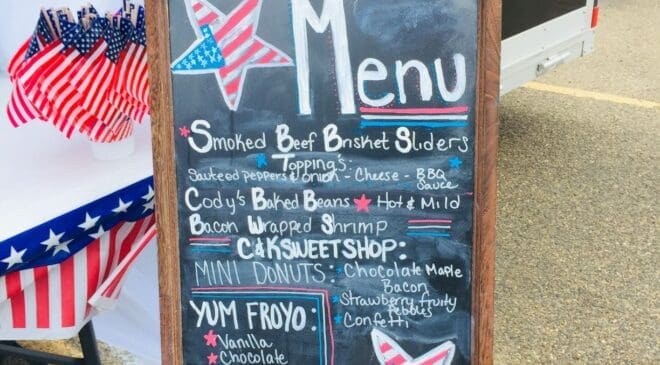 Menu
Smoked Beef Brisket Sliders
Toppings:
Sauteed peppers & onion - Cheese - BBQ
Sauce
Cody's Baked Beans Hot & Mild
Bacon Wrapped Shrimp
C&K SWEET SHOP:
MINI DONUTS: Chocolate Maple
Bacon
Strawberry fruity
Pebbles
Confetti
YUM FROYO:
Vanilla
Chocolate